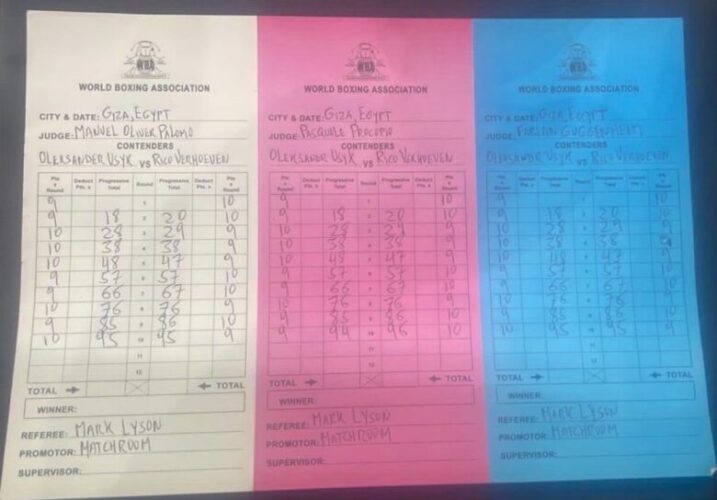 WBA
WORLD BOXING ASSOCIATION
CITY & DATE: GIZA, EGYPT
JUDGE: MANUEL OLIVER PALOMO
CONTENDERS
OLEKSANDER USYK VS RICO VERHOEVEN
Pts x Round Deduct Pts. x Progressive Total Round Progressive Total Deduct Pts. x Pts x Round
9 1 10
9 18 2 20 10
10 28 3 29 9
10 38 4 38 9
10 48 5 47 9
9 57 6 57 10
9 66 7 67 10
10 76 8 76 9
9 85 9 86 10
10 95 10 95 9
11
12
TOTAL TOTAL
WINNER:
REFEREE: MARK LYSON
PROMOTOR: MATCHROOM
SUPERVISOR:
WBA
WORLD BOXING ASSOCIATION
CITY & DATE: GIZA, EGYPT
JUDGE: PASQUALE PROCOPIO
CONTENDERS
OLEKSANDR USYK VS RICO VERHOEVEN
Pts x Round Deduct Pts. x Progressive Total Round Progressive Total Deduct Pts. x Pts x Round
9 1 10
9 18 2 20 10
10 28 3 29 9
10 38 4 38 9
10 48 5 47 9
9 57 6 57 10
9 66 7 67 10
10 76 8 76 9
9 85 9 86 10
9 94 10 96 10
11
12
TOTAL TOTAL
WINNER:
REFEREE: MARK LYSON
PROMOTOR: MATCHROOM
SUPERVISOR:
WBA
WORLD BOXING ASSOCIATION
CITY & DATE: GIZA, EGYPT
JUDGE: GUGGENHEIM
CONTENDERS
OLEKSANDR USYK VS RICO VERHOEVEN
Pts x Round Deduct Pts. x Progressive Total Round Progressive Total Deduct Pts. x Pts x Round
9 1 10
9 18 2 20 10
10 28 3 29 9
10 38 4 38 9
10 48 5 47 9
9 57 6 57 10
9 66 7 67 10
10 76 8 76 9
9 85 9 86 10
10 95 10 95 9
11
12
TOTAL TOTAL
WINNER:
REFEREE: MARK LYSON
PROMOTOR: MATCHROOM
SUPERVISOR: